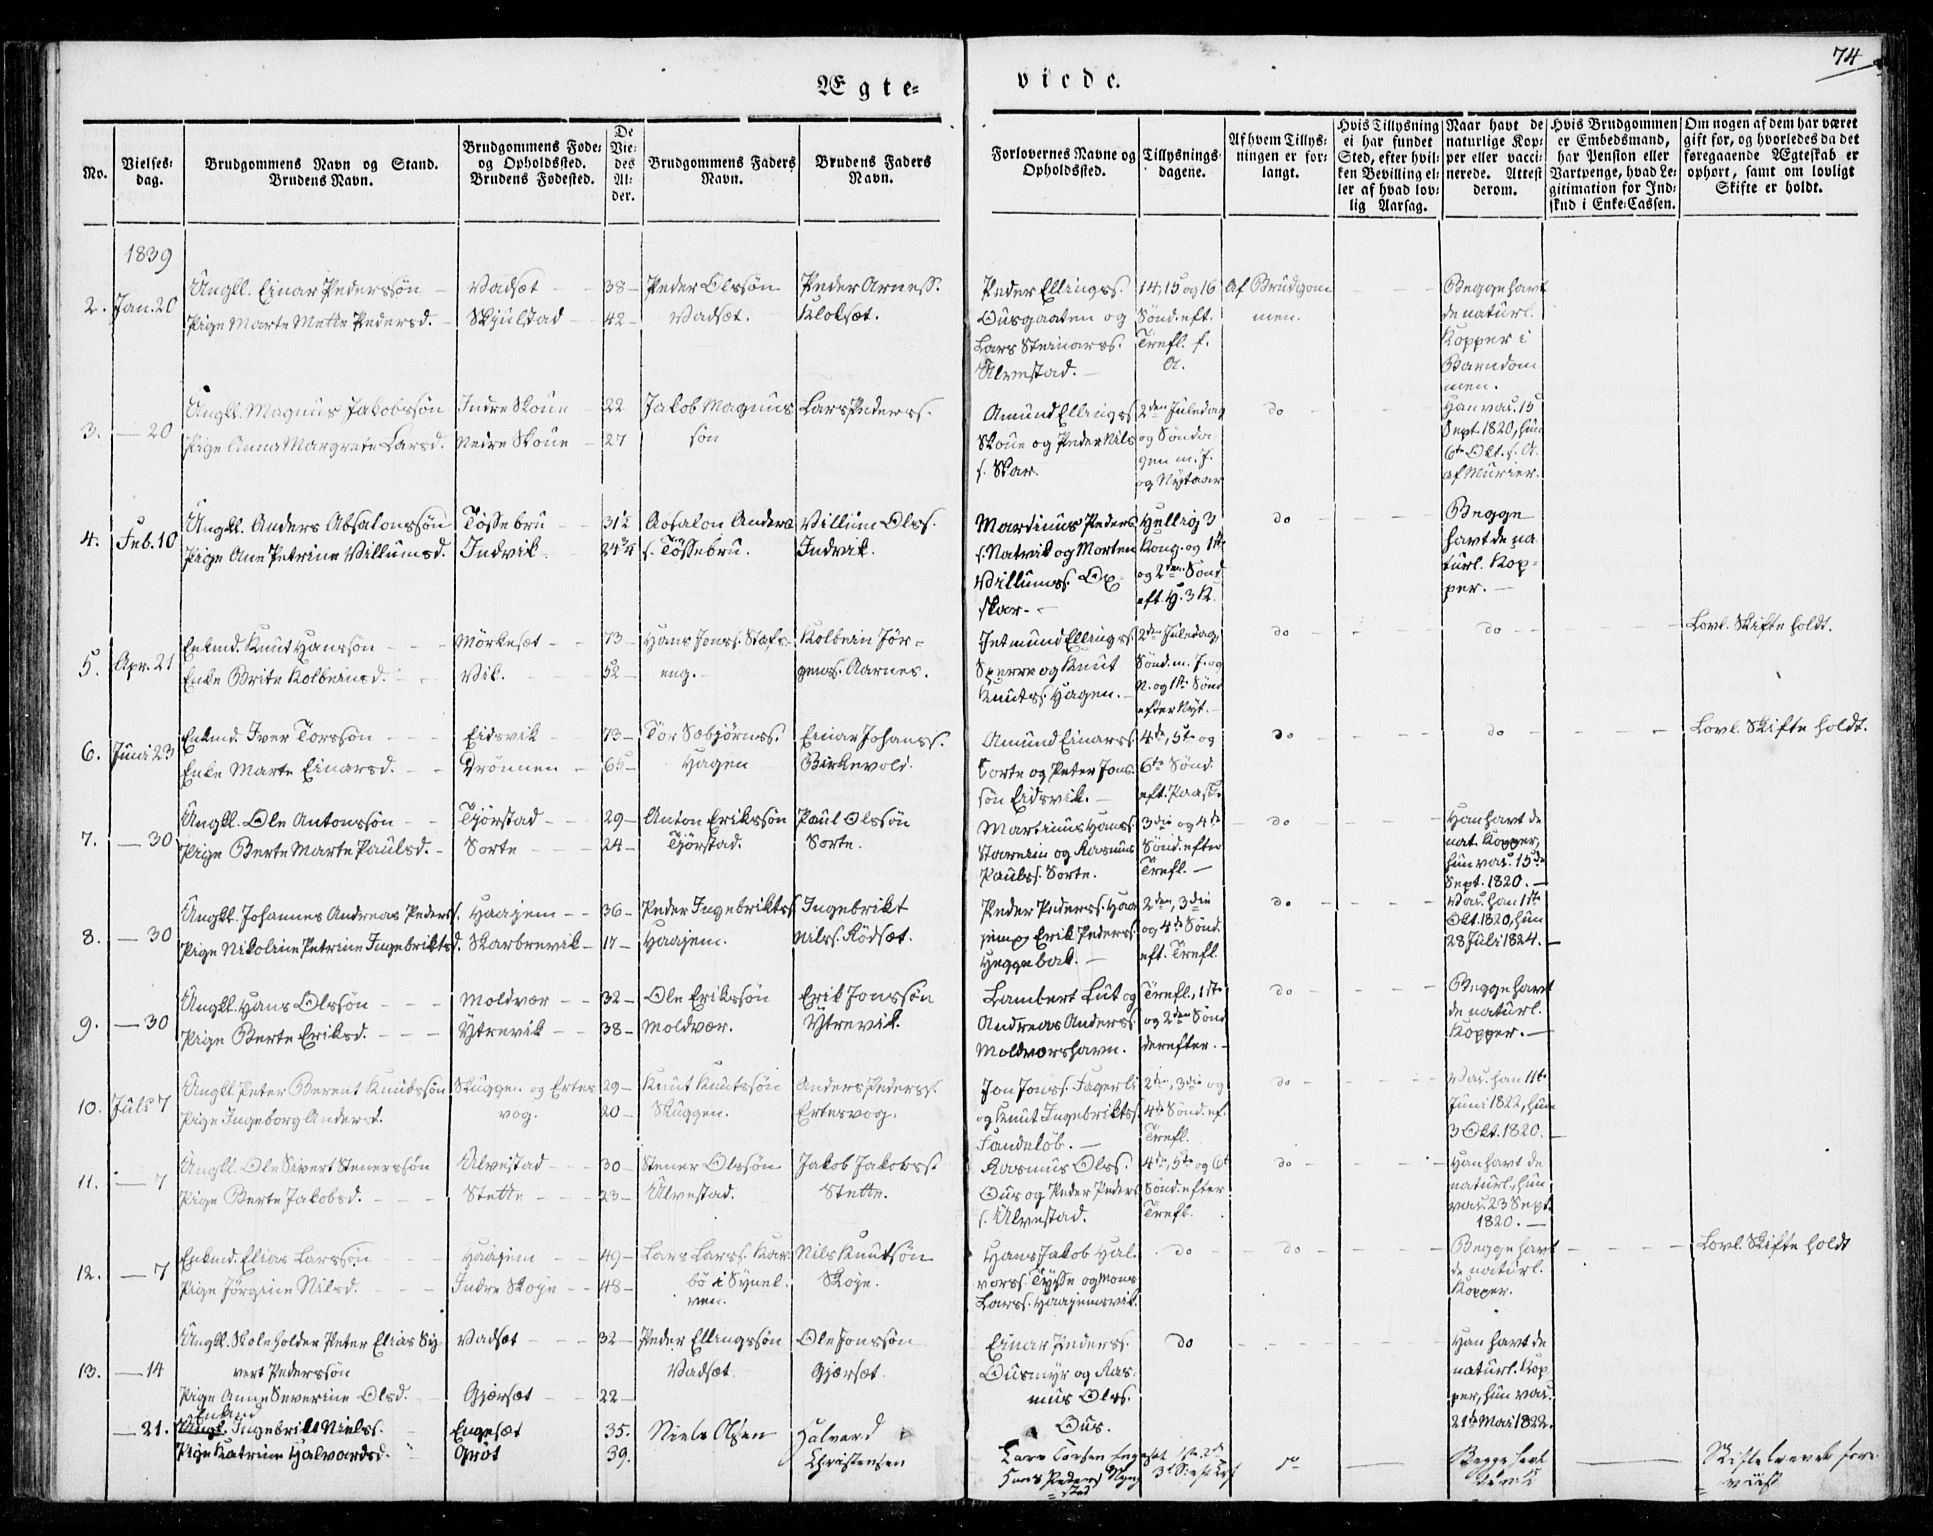 74
Ægte=
viede.
No.
Vielses=
dag.
Brudgommens Navn og Stand.
Brudens Navn.
Brudgommens Føde=
og Opholdssted.
Brudens Fødested.
De
Vie=
des
Al=
der.
Brudgommens Faders
Navn.
Brudens Faders
Navn.
Forlovernes Navne og
Opholdssted.
Tillysnings=
dagene.
Af hvem Tillys=
ningen er for=
langt.
Hvis Tillysning
ei har fundet
Sted, efter hvil=
ken Bevilling el=
ler af hvad lov=
lig Aarsag.
Naar havt de
naturlige Kop=
per eller vacci=
nerede. Attest
derom.
Hvis Brudgommen
er Embedsmand,
har Pension eller
Vartpenge, hvad Le=
gitimation for Ind=
skud i Enke=Cassen.
Om nogen af dem har været
gift før, og hvorledes da det
foregaaende Ægteskab er
ophørt, samt om lovligt
Skifte er holdt.
1839
2. Jan. 20
Ungkl. Einar Pederssøn
Pige Marte Mette Pedersd.
Vadsæt
Skjulstad
38
42
Peder Olssøn
Vadsæt.
Peder Arness.
Kloksæt.
Peder Ellingss.
Ousgaaten og
Lars Steinarss.
Ulvestad.
14, 15 og 16
Sønd. eft.
Trefl. f.
A.
Af Brudgom
men.
Begge havt
de naturl.
Kopper i
Barndom
men.
3. — 20
Ungkl. Magnus Jakobssøn
Pige Anna Margrete Larsd.
Indre Skoue
Nedre Skoue
22
27
Jakob Magnus
søn
Lars Pederss.
Amund Ellingss
Skoue og Peder Nils
s. Skar.
2den Juledag
og Sønda
gen m. J.
og Nytaar
do
Han vac. 15
Sept. 1820, hun
6te Okt. s. A.
af Murier.
4. Feb. 10
Ungkl. Anders Absalonssøn
Pige Ane Petrine Villumsd.
Tøssebru
Indvik
31½
24¾
Absalon Anders
s. Tøssebru.
Villum Olss.
Indvik.
Martinus Peders
s. Natvik og Morten
Villumss. Op
skar.
Hellig 3
Kong. og 1ste
og 2den Sønd
eft. H. 3 K.
do
Begge
havt de na
turl. Kop=
per.
5. Apr. 21
Enkmd. Knut Hanssøn
Enke Brite Kolbeinsd.
Mørkesæt
Vik.
73
52
Hans Jonss. Stafs=
eng.
Kolbein Jør=
genss. Aarnes.
Jetmund Ellingss.
Sperre og Knut
Knutss. Hagen.
2den Juledag,
Sønd. m. J. og
N. og 1ste Sønd
efter Nyt.
do
do
Lovl. Skifte holdt.
6. Juni 23
Enkmd. Iver Torssøn
Enke Marte Einarsd.
Eidsvik
Drønnen
73
65
Tor Sæbjørnss.
Hagen
Einar Johanss.
Birkevold.
Amund Einarss
Sorte og Peter Jons
søn Eidsvik.
4de, 5te og
6te Sønd.
eft. Paaske
do
do
Lovl. Skifte holdt.
7. — 30
Ungkl. Ole Antonssøn
Pige Berte Marte Paulsd.
Tjørstad
Sorte
29
24
Anton Erikssøn
Tjørstad.
Paul Olssøn
Sorte.
Martinus Hanss.
Starheim og Rasmus
Paulss. Sorte.
3die og 4de
Sønd. efter
Trefl.
do
Han havt de
nat. Kopper,
hun vac. 15de
Sept. 1820.
8. — 30
Ungkl. Johannes Andreas Peders.
Pige Nikoline Petrine Ingebriktsd.
Haajem
Skarbrevik
36
17
Peder Ingebriktss
Haajem.
Ingebrikt
Nilss. Rødsæt.
Peder Pederss. Haa
jem og Erik Pederss.
Heggebak.
2den, 3die
og 4de Sønd.
eft. Trefl.
do
Vac. han 1ste
Okt. 1820, hun
28 Juli 1824.
9. — 30
Ungkl. Hans Olssøn
Pige Berte Eriksd.
Moldvær
Ytrevik
32
38
Ole Erikssøn
Moldvær.
Erik Jonssøn
Ytrevik.
Lambert Lut og
Andreas Anderss.
Moldværshavn.
Trefl., 1ste
og 2den Sønd
derefter.
do
Begge havt
de naturl.
Kopper.
10. Juli 7
Ungkl. Peter Berent Knutssøn
Pige Ingeborg Andersd.
Skuggen og Ertes
vog.
29
20
Knut Knutssøn
Skuggen.
Anders Pederss.
Ertesvog.
Jon Jonss. Fagerli
og Knut Ingebriktss.
Sandeløb.
2den, 3die og
4de Sønd. ef.
Trefl.
do
Vac. han 11te
Juni 1822, hun
3 Okt. 1820.
11. — 7
Ungkl. Ole Sivert Stenerssøn
Pige Berte Jakobsd.
Ulvestad
Stette
30
23
Stener Olssøn
Ulvestad.
Jakob Jakobss.
Stette.
Rasmus Olss.
Ous og Peder Peders
s. Ulvestad.
4de, 5te og 6te
Sønd. efter
Trefl.
do
Han havt de
naturl., hun
vac. 23 Sept.
1820.
12. — 7
Enkmd. Elias Larssøn
Pige Jørgine Nilsd.
Haajem
Indre Skoje
49
48
Lars Larss. Kar
bø i Synel
ven.
Nils Knutsøn
Skoje.
Hans Jakob Hal
vorss. Tysse og Mons
Larss. Haajemsvik.
do
do
Begge havt
de naturl.
Kopper.
Lovl. Skifte holdt
13. — 14
Ungkl. Skoleholder Peter Elias Sy
vert Pederssøn
Pige Anne Severine Olsd.
Vadsæt
Gjærsæt
32
22
Peder Ellingssøn
Vadsæt
Ole Jonssøn
Gjærsæt.
Einar Pederss.
Ousmyr og Ras
mus Olss.
Ous.
do
Han havt de
naturl. Kop
per, hun vac.
21de Mai 1822.
— 21.
Enkmd
Ungk. Ingebrikt Nielss.
Pige Katrine Halvardsd.
Engesæt
Grøt
35.
39.
Niels Olsen
Halvard
Christensen
Lars Torsen Engeset
Hans Peders
stad
do
Begge havt
Skiftebrevet fore
viist